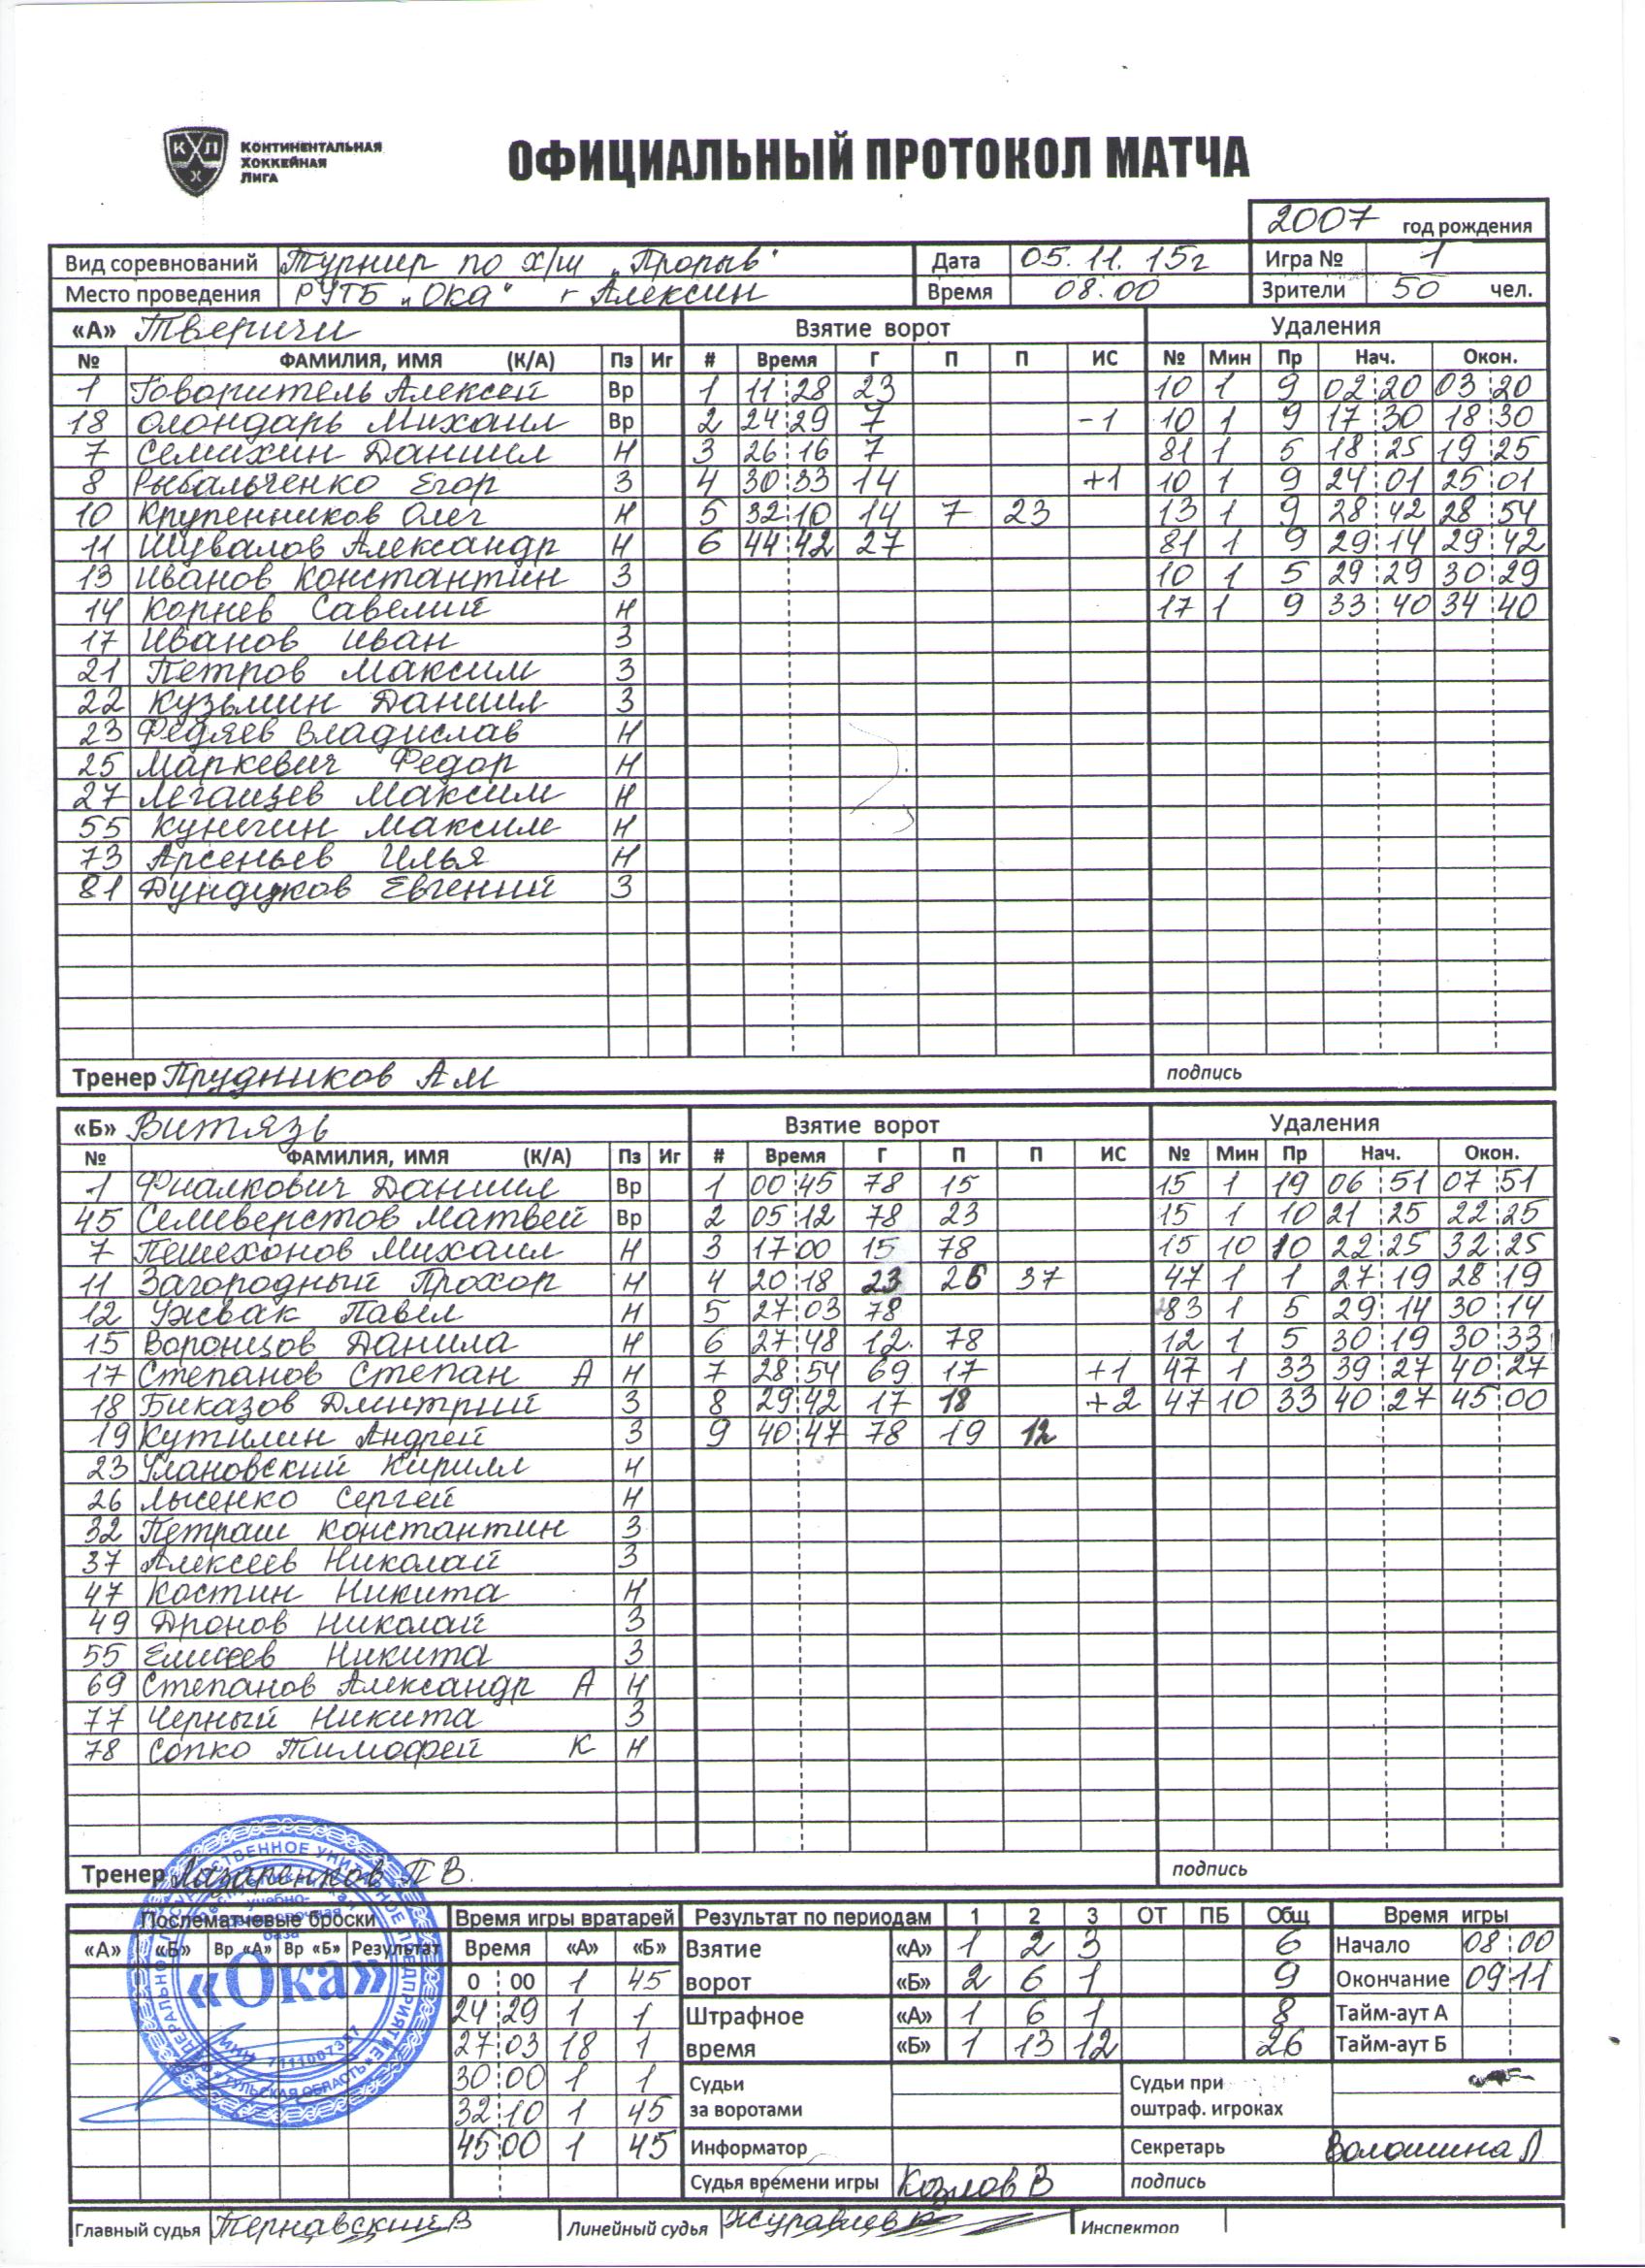 КХЛ КОНТИНЕНТАЛЬНАЯ
ХОККЕЙНАЯ
ЛИГА
ОФИЦИАЛЬНЫЙ ПРОТОКОЛ МАТЧА
2007 год рождения
Вид соревнований Турнир по х/ш „Прорыв" Дата 05.11.15г Игра № 1
Место проведения РУТБ „Ока" г Алексин Время 08.00 Зрители 50 чел.
«А» Тверичи Взятие ворот Удаления
№ ФАМИЛИЯ, ИМЯ (К/А) Пз Иг # Время Г П П ИС № Мин Пр Нач. Окон.
1 Говоритель Алексей Вр 1 11 28 23 10 1 9 02 20 03 20
18 Олондарь Михаил Вр 2 24 29 7 -1 10 1 9 17 30 18 30
7 Семихин Даниил Н 3 26 16 7 81 1 5 18 25 19 25
8 Рыбальченко Егор З 4 30 33 14 +1 10 1 9 24 01 25 01
10 Крупенников Олег Н 5 32 10 14 7 23 13 1 9 28 42 28 54
11 Шувалов Александр Н 6 44 42 27 81 1 9 29 14 29 42
13 Иванов Константин З 10 1 5 29 29 30 29
14 Корнев Савелий Н 17 1 9 33 40 34 40
17 Иванов Иван З
21 Петров Максим З
22 Кузьмин Даниил З
23 Федяев Владислав Н
25 Маркевич Федор Н
27 Леганцев Максим Н
55 Кунегин Максим Н
73 Арсеньев Илья Н
81 Дундуков Евгений З
Тренер Прудников А М подпись
«Б» Витязь Взятие ворот Удаления
№ ФАМИЛИЯ, ИМЯ (К/А) Пз Иг # Время Г П П ИС № Мин Пр Нач. Окон.
1 Фиалкович Даниил Вр 1 00 45 78 15 15 1 19 06 51 07 51
45 Селиверстов Матвей Вр 2 05 12 78 23 15 1 10 21 25 22 25
7 Пешехонов Михаил Н 3 17 00 15 78 15 10 10 22 25 32 25
11 Загородный Прохор Н 4 20 18 23 26 37 47 1 1 27 19 28 19
12 Ужвак Павел Н 5 27 03 78 83 1 5 29 14 30 14
15 Воронцов Данила Н 6 27 48 12 78 12 1 5 30 19 30 33
17 Степанов Степан А Н 7 28 54 69 17 +1 47 1 33 39 27 40 27
18 Биказов Дмитрий З 8 29 42 17 18 +2 47 10 33 40 27 45 00
19 Кутилин Андрей З 9 40 47 78 19 12
23 Улановский Кирилл Н
26 Лысенко Сергей Н
32 Петраш Константин З
37 Алексеев Николай З
47 Костин Никита Н
49 Дронов Николай З
55 Елисеев Никита З
69 Степанов Александр А Н
77 Черный Никита З
78 Сопко Тимофей К Н
Тренер Лазаренков П В. подпись
Послематчевые броски Время игры вратарей Результат по периодам 1 2 3 ОТ ПБ Общ Время игры
«А» «Б» Вр «А» Вр «Б» Результат Время «А» «Б» Взятие «А» 1 2 3 6 Начало 08 00
0 00 1 45 ворот «Б» 2 6 1 9 Окончание 09 11
24 29 1 1 Штрафное «А» 1 6 1 8 Тайм-аут А
27 03 18 1 время «Б» 1 13 12 26 Тайм-аут Б
30 00 1 1 Судьи Судьи при
32 10 1 45 за воротами оштраф. игроках
45 00 1 45 Информатор Секретарь Волошина Л
Судья времени игры Козлов В подпись
«Ока»
Главный судья Тернавский В Линейный судья Журавлев Инспектор